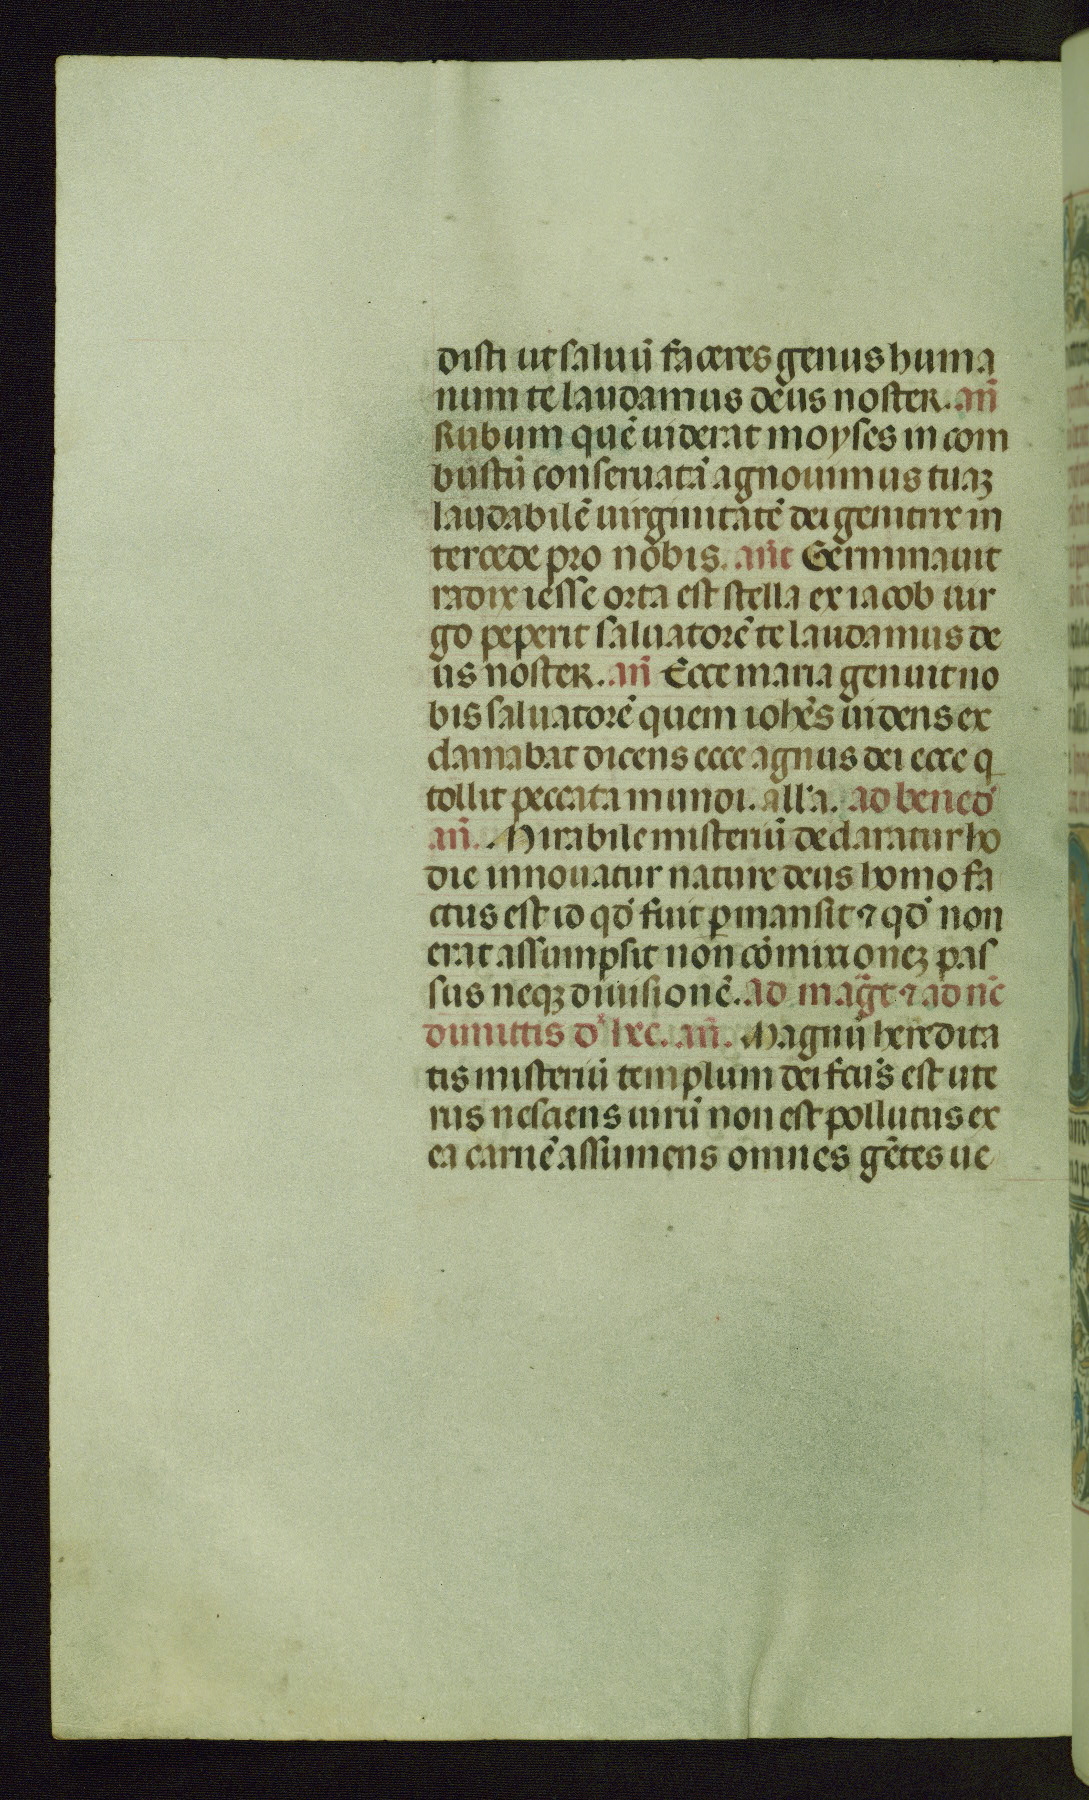 disti ut saluū faceres genus huma
num te laudamus deus noster. añ
Rubum quē uiderat moyses in com
bustū conseruatā agnouimus tuaꝫ
laudabilē uirginitatē dei genitrix in
tercede pro nobis. añt Germinauit
radix iesse orta est stella ex iacob uir
go peperit saluatorē te laudamus de
us noster. añ Ecce maria genuit no
bis saluatorē quem iohēs uidens ex
clamabat dicens ecce agnus dei ecce q
tollit peccata mundi. all'a. ad bened̄
añ. Mirabile misteriū declaratur ho
die innouatur nature deus homo fa
ctus est id qd̄ fuit ꝑmansit ⁊ qd̄ non
erat assumpsit non cōmixioneꝫ pas
sus neqꝫ diuisionē. ad mag̃t ⁊ ad nc̄
dimittis d' hec. añ. Magnū heredita
tis misteriū templum dei fctūs est ute
rus nesciens uirū non est pollutus ex
ea carnē assumens omnes gētes ue